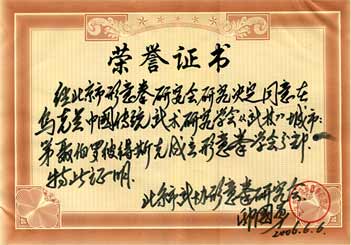 荣誉证书
经北京市形意拳研究会研究决定同意在
乌克兰中國传统武术研究学会“武林”城市:
第聂伯罗彼得罗斯克成立形意拳学会分部.
特此证明.
北京市武协形意拳研究会
2006.6.6.